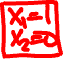 X₁=1
X₂=0